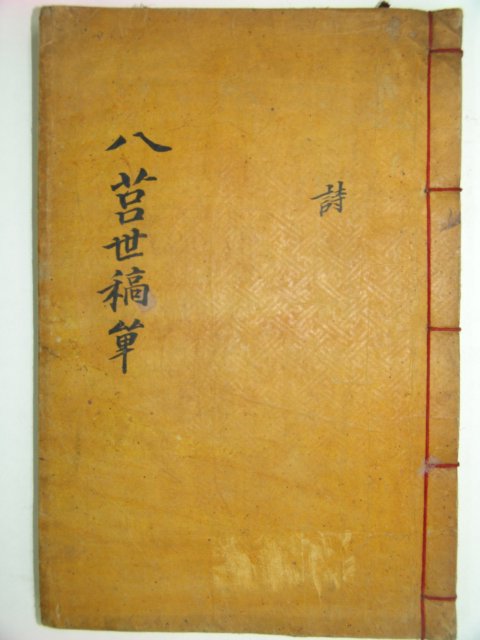 八莒世稿單
詩